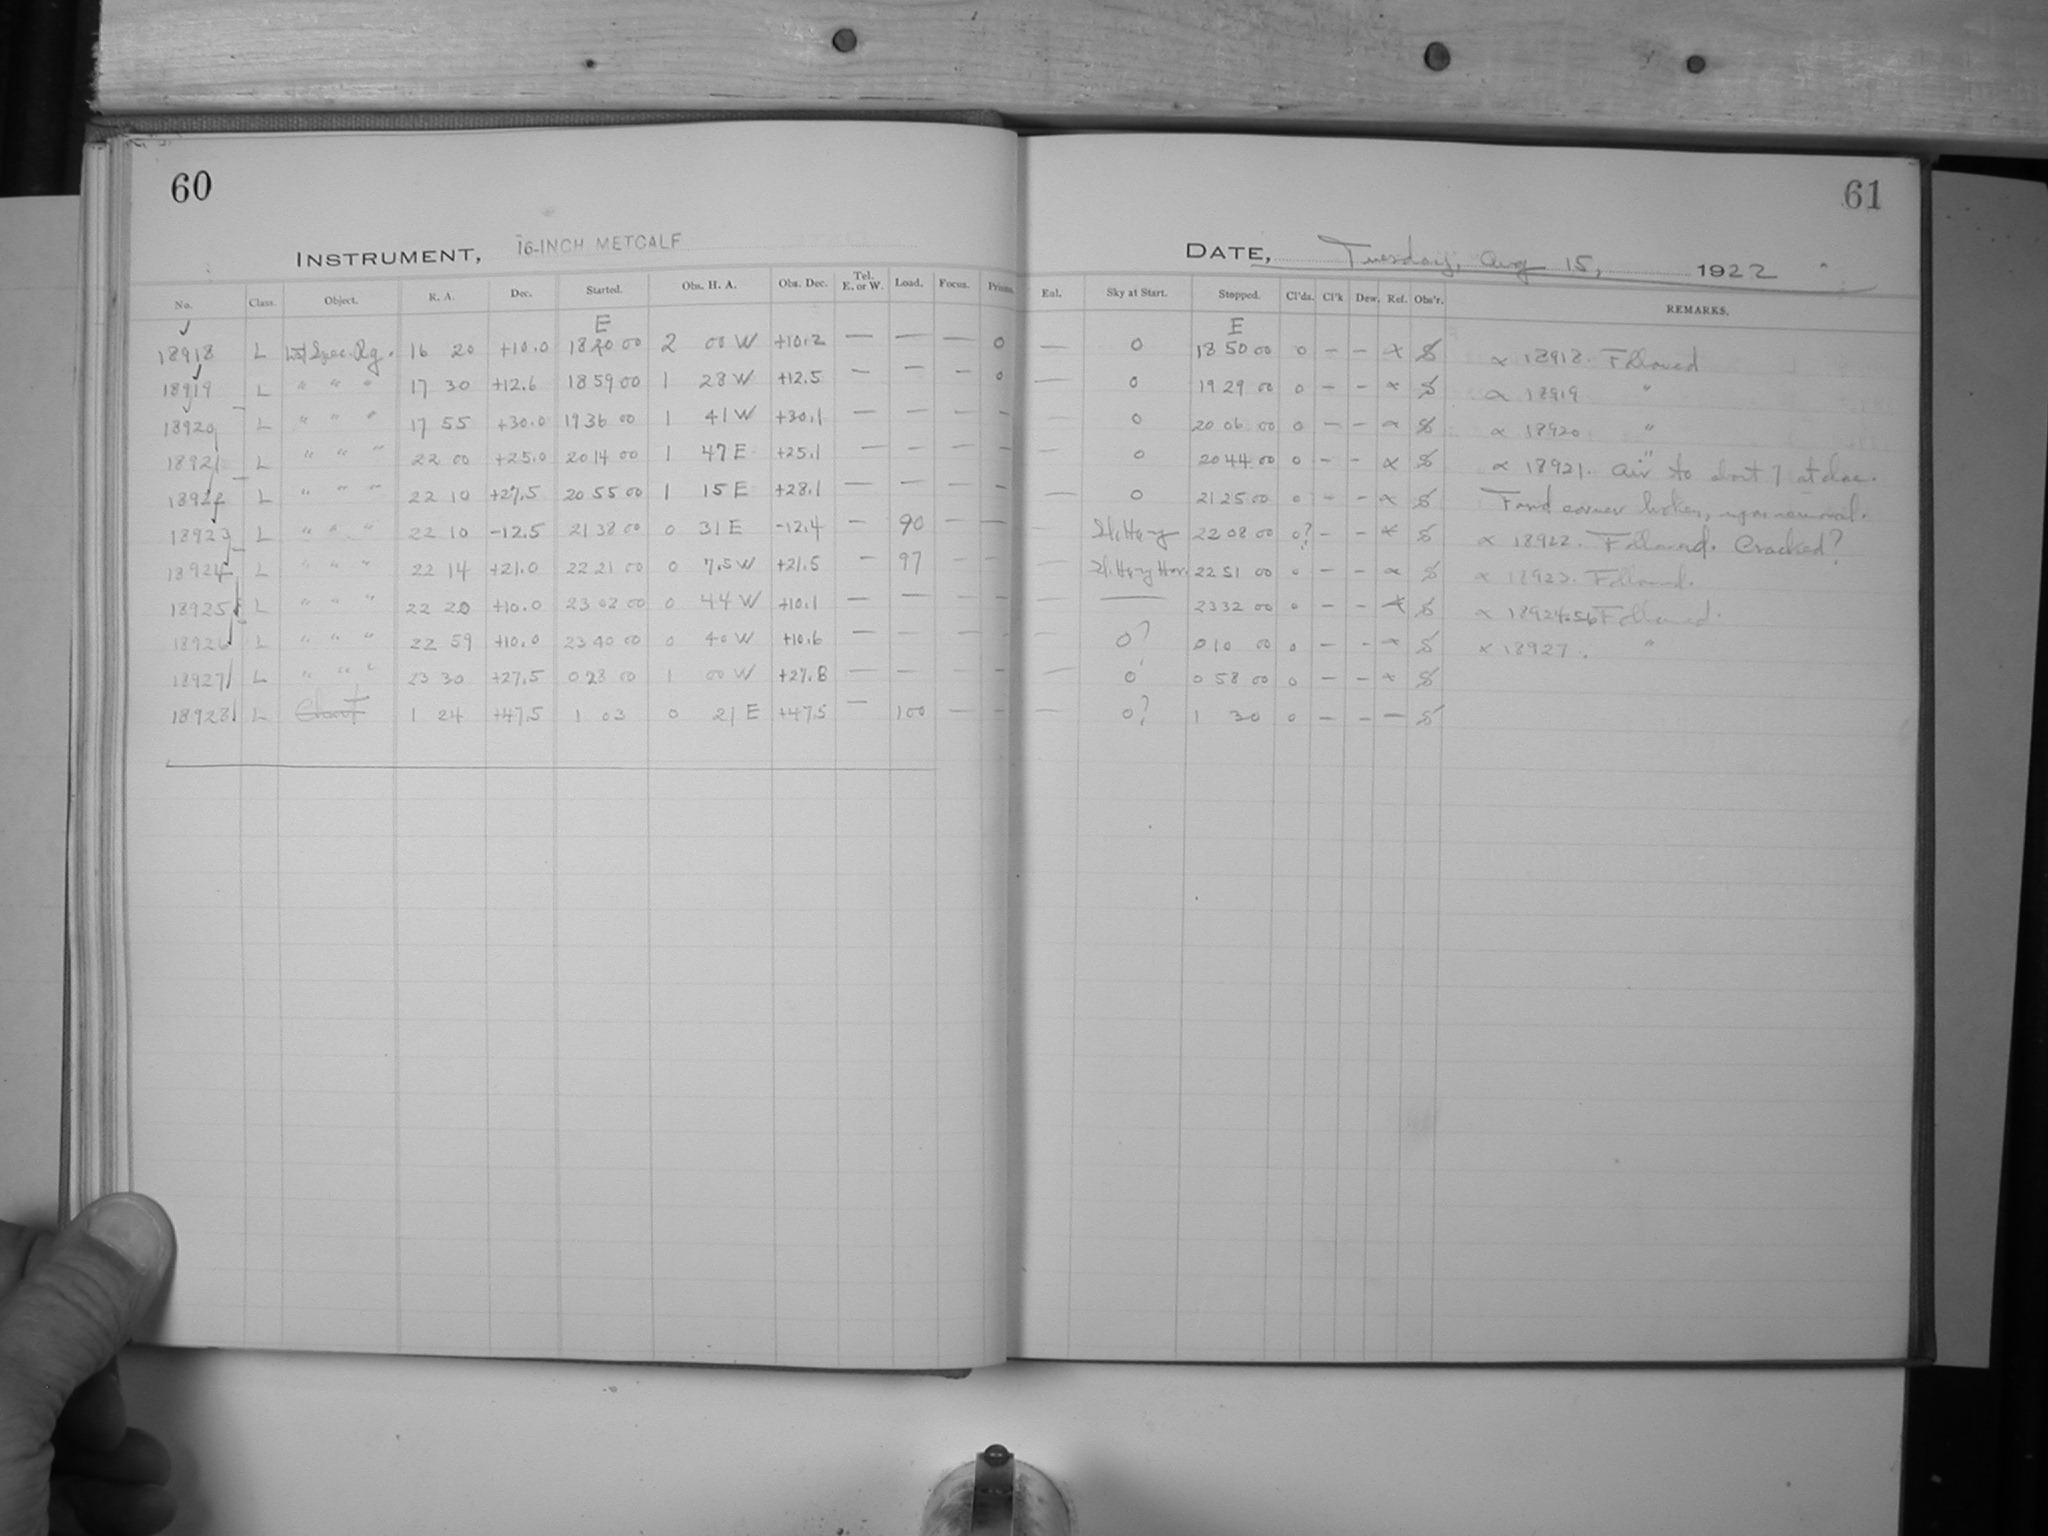 60
61
INSTRUMENT, 16-INCH METCALF
DATE, Tuesday, Aug 15, 1922
No. Class. Object. R. A. Dec. Started. Obs. H. A. Obs. Dec. Tel. E. or W. Load. Focus. Prisms. Eul. Sky at Start. Stopped. Cl'ds. Cl'k Dew. Ref. Obs'r. REMARKS.
E E
18918 L Spec. Rg. 16 20 +10.0 18 20 00 2 00 W +10.2 — — — 0 — 0 18 50 00 0 – – × S ∝ 18918. Followed
18919 L " " " 17 30 +12.6 18 59 00 1 28 W +12.5 — — — 0 — 0 19 29 00 0 – – × S ∝ 18919 "
18920 L " " " 17 55 +30.0 19 36 00 1 41 W +30.1 — — — – — 0 20 06 00 0 – – × S ∝ 18920 "
18921 L " " " 22 00 +25.0 20 14 00 1 47 E +25.1 — — — – — 0 20 44 00 0 – – × S ∝ 18921. " Air to about 7 at
18922 L " " " 22 10 +27.5 20 55 00 1 15 E +28.1 — — — – — 0 21 25 00 0 – – × S Found corner broken, upon removal.
18923 L " " " 22 10 -12.5 21 38 00 0 31 E -12.4 — 90 — — Sl. Hazy 22 08 00 0? – – × S ∝ 18922. Followed. Cracked?
18924 L " " " 22 14 +21.0 22 21 00 0 7.5 W +21.5 — 97 — – — Sl. Hazy Hor. 22 51 00 0 – – × S ∝ 18923. Followed.
18925 L " " " 22 20 +10.0 23 02 00 0 44 W +10.1 — — — – — — 23 32 00 0 – – × S ∝ 18924.5.6 Followed.
18926 L " " " 22 59 +10.0 23 40 00 0 40 W +10.6 — — — – — 0? 0 10 00 0 – – × S × 18927. "
18927 L " " " 23 30 +27.5 0 28 00 1 00 W +27.8 — — — – — 0 0 58 00 0 – – × S
18928 L Chart 1 24 +47.5 1 03 0 21 E +47.5 — 100 — – — 0? 1 30 0 – – – S